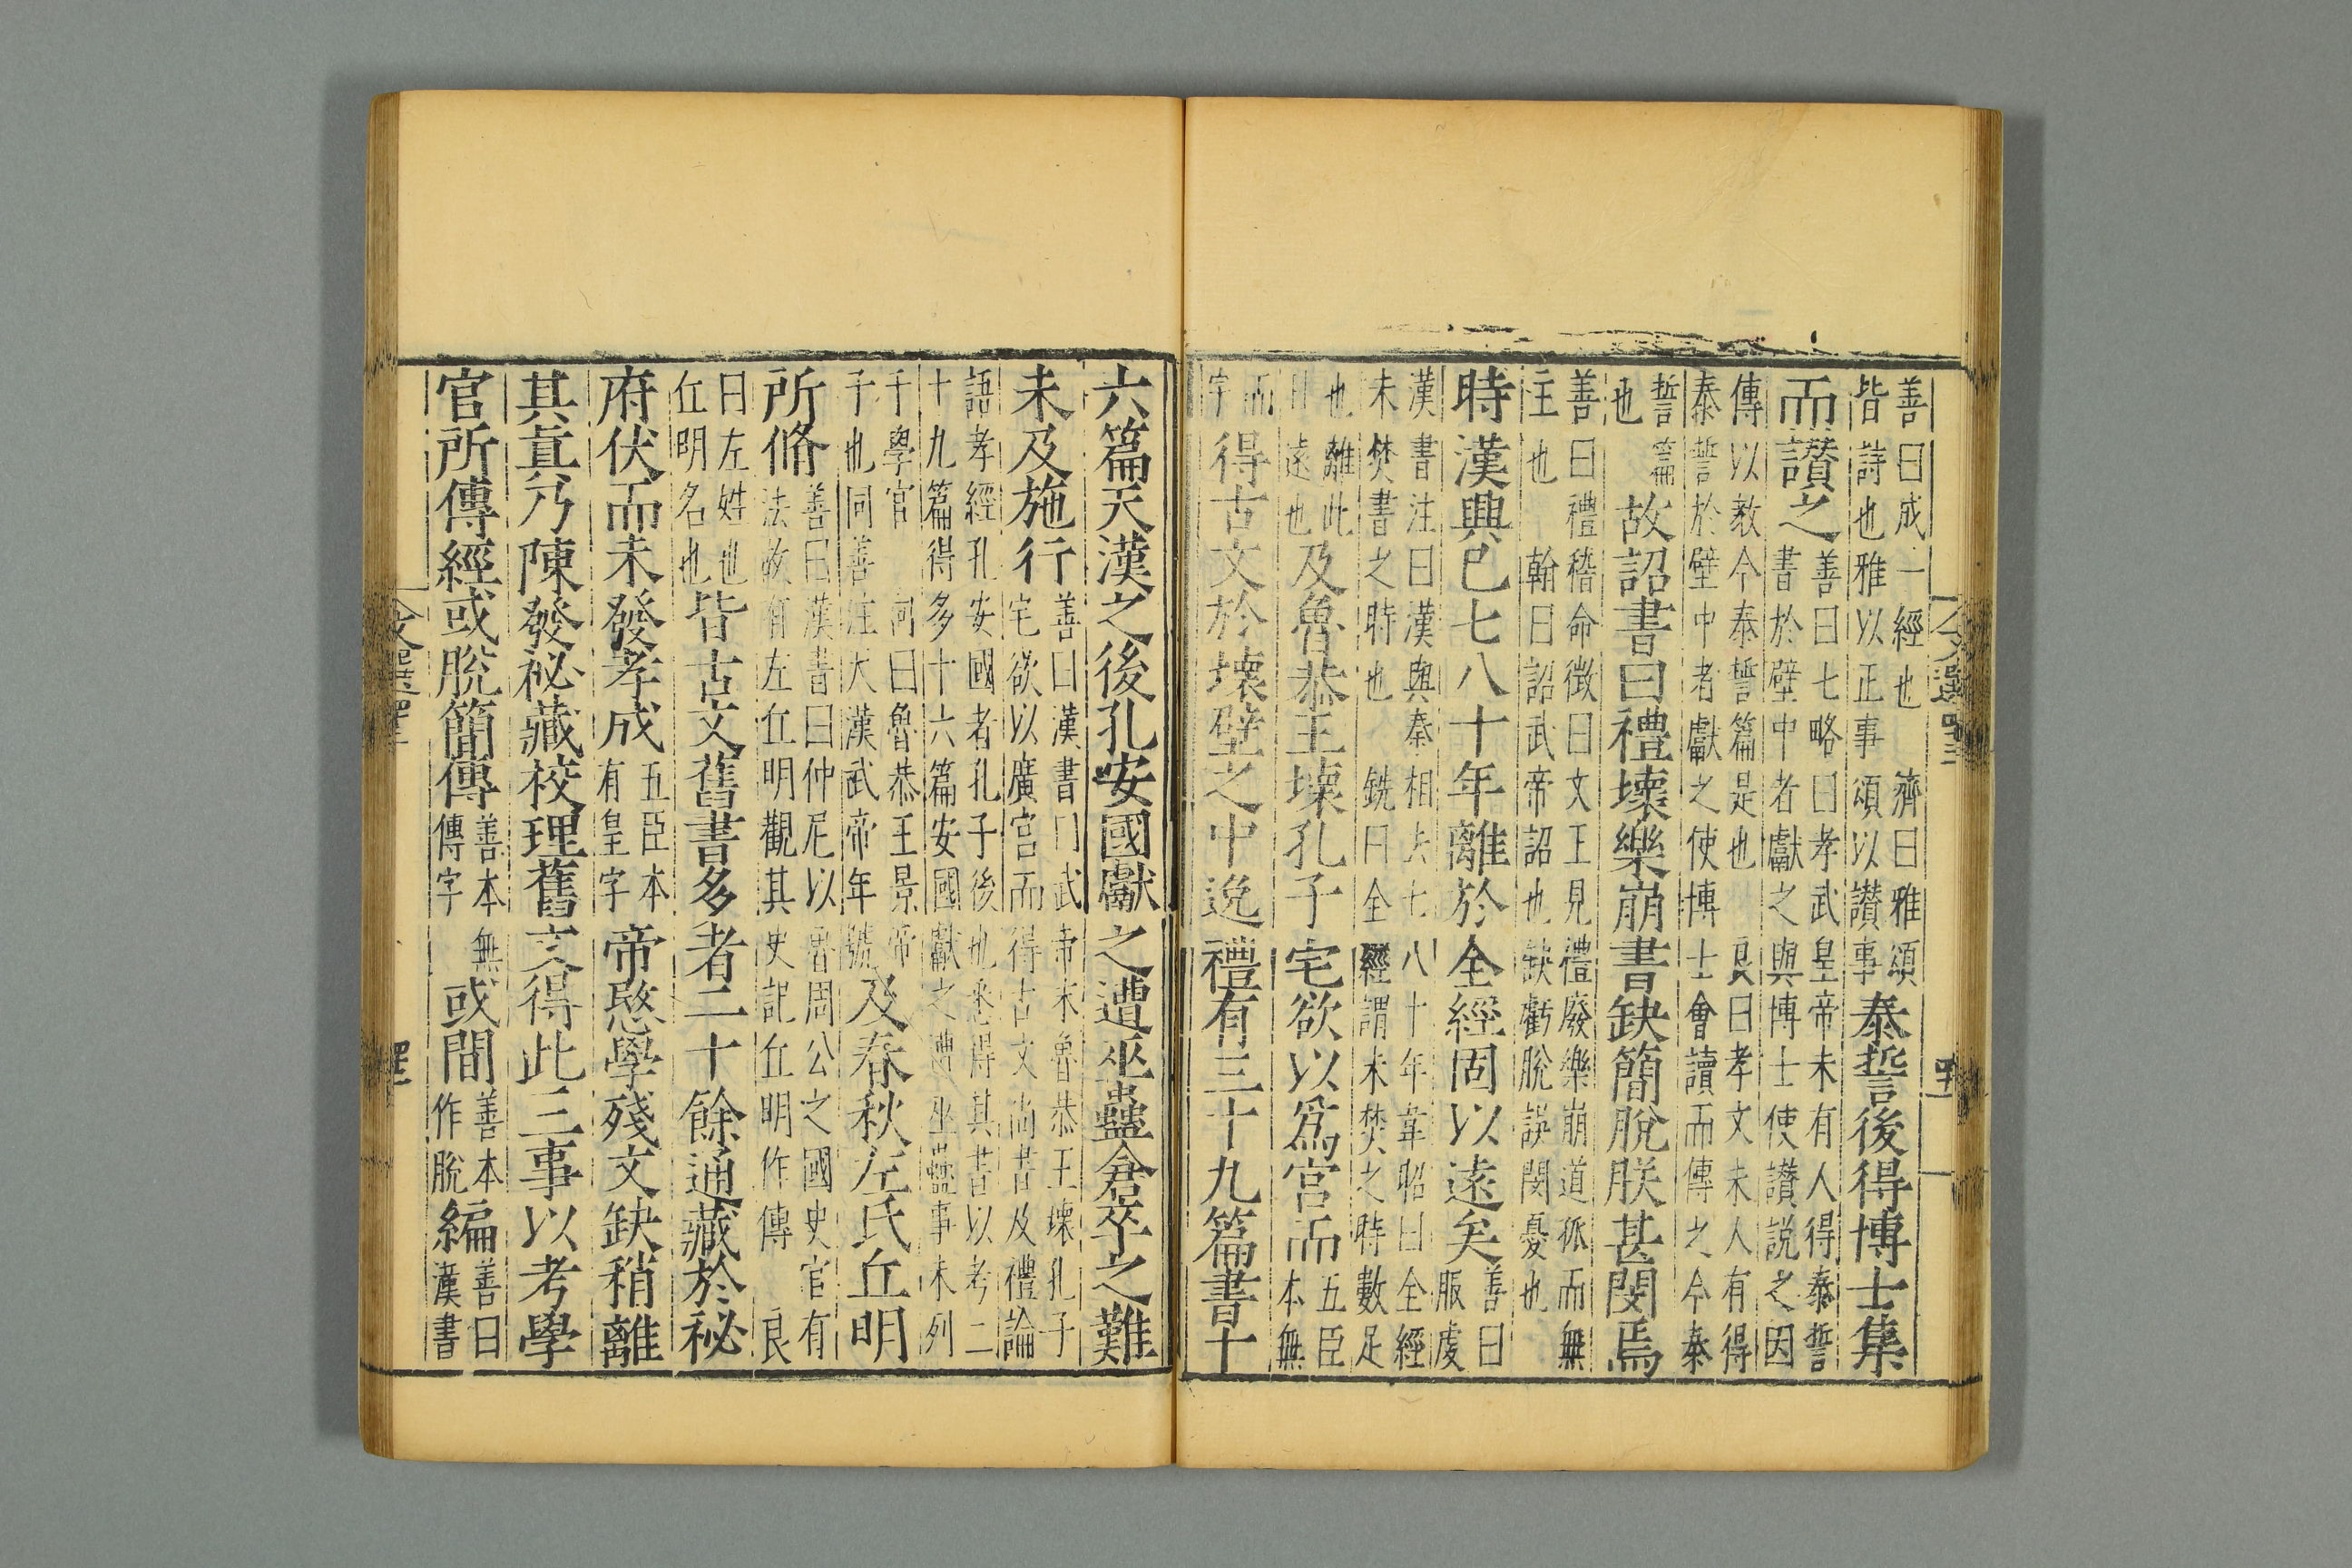 善曰成一經也　濟曰雅頌
皆詩也雅以正事頌以讃事
泰誓後得博士集
而讃之
善曰七略曰孝武皇帝末有人得泰誓
書於壁中者獻之與博士使讃説之因
傳以教今泰誓篇是也　良曰孝文末人有得
泰誓於壁中者獻之使博士會讀而傳之今泰
誓篇
也
故詔書曰禮壞樂崩書缺簡脫朕甚閔焉
善曰禮稽命徵曰文王見禮廢樂崩道孤而無
主也　翰曰詔武帝詔也缺虧脫誤閔憂也
時漢興已七八十年離於全經固以遠矣
善曰
服虔
漢書注曰漢興秦相去七八十年韋昭曰全經
未焚書之時也　銑曰全經謂未焚之時數足
也離此
遠也
及魯恭王壞孔子宅欲以爲宮而
五臣
本無
而
字
得古文於壞壁之中逸禮有三十九篇書十
六篇天漢之後孔安國獻之遭巫蠱倉卒之難
未及施行
善曰漢書曰武帝末魯恭王壞孔子
宅欲以廣宮而得古文尚書及禮論
語孝經孔安國者孔子後也悉得其書以考二
十九篇得多十六篇安國獻之遭巫蠱事未列
于學官　向曰魯恭王景帝
子也同善注天漢武帝年號
及春秋左氏丘明
所脩
善曰漢書曰仲尼以魯周公之國史官有
法故有左丘明觀其史記丘明作傳　良
曰左姓也
丘明名也
皆古文舊書多者二十餘通藏於祕
府伏而未發孝成
五臣本
有皇字
帝愍學殘文缺稍離
其真乃陳發祕藏校理舊文得此三事以考學
官所傳經或脫簡傳
善本無
傳字
或間
善本
作脫
編
善曰
漢書
文選四十三
四十一